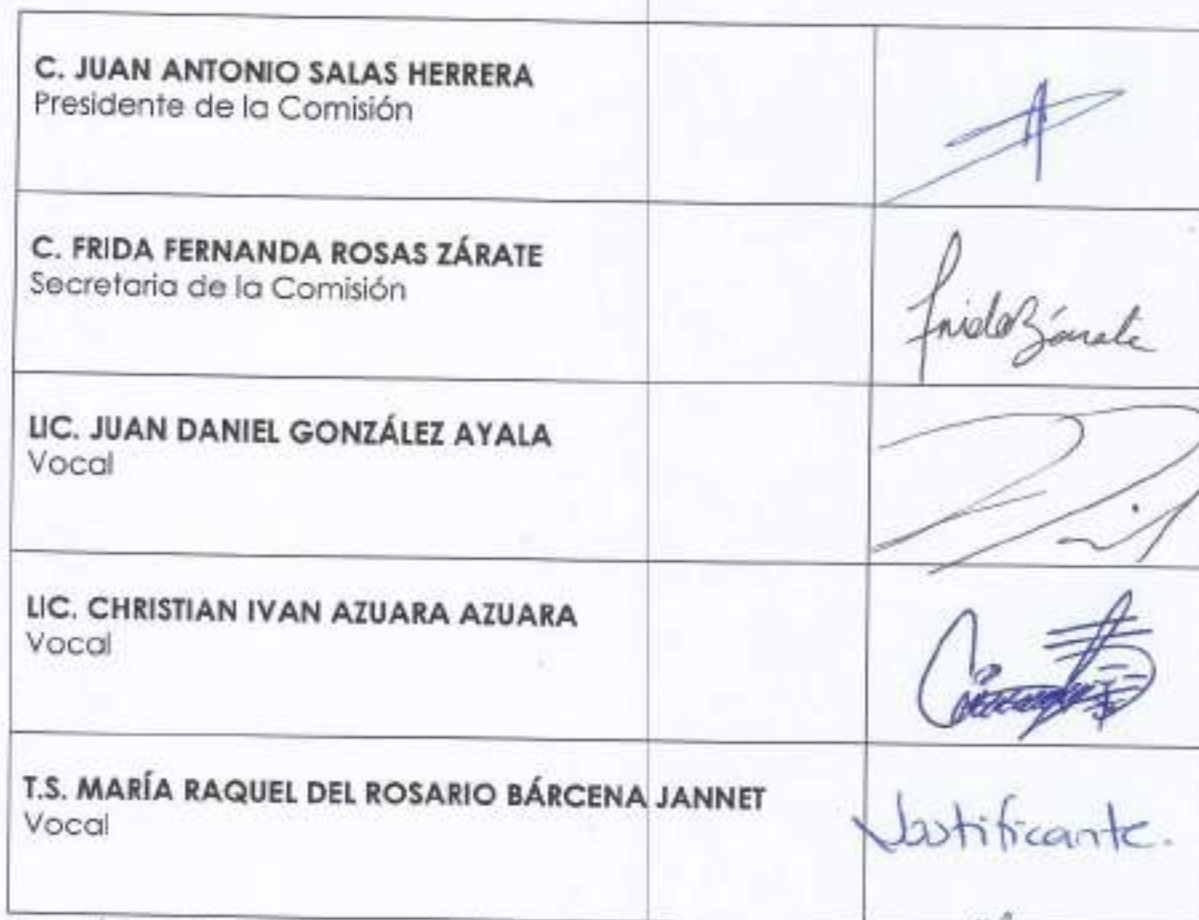 C. JUAN ANTONIO SALAS HERRERA
Presidente de la Comisión
C. FRIDA FERNANDA ROSAS ZÁRATE
Secretaria de la Comisión
Frida Zárate
LIC. JUAN DANIEL GONZÁLEZ AYALA
Vocal
LIC. CHRISTIAN IVAN AZUARA AZUARA
Vocal
T.S. MARÍA RAQUEL DEL ROSARIO BÁRCENA JANNET
Vocal
Justificante.